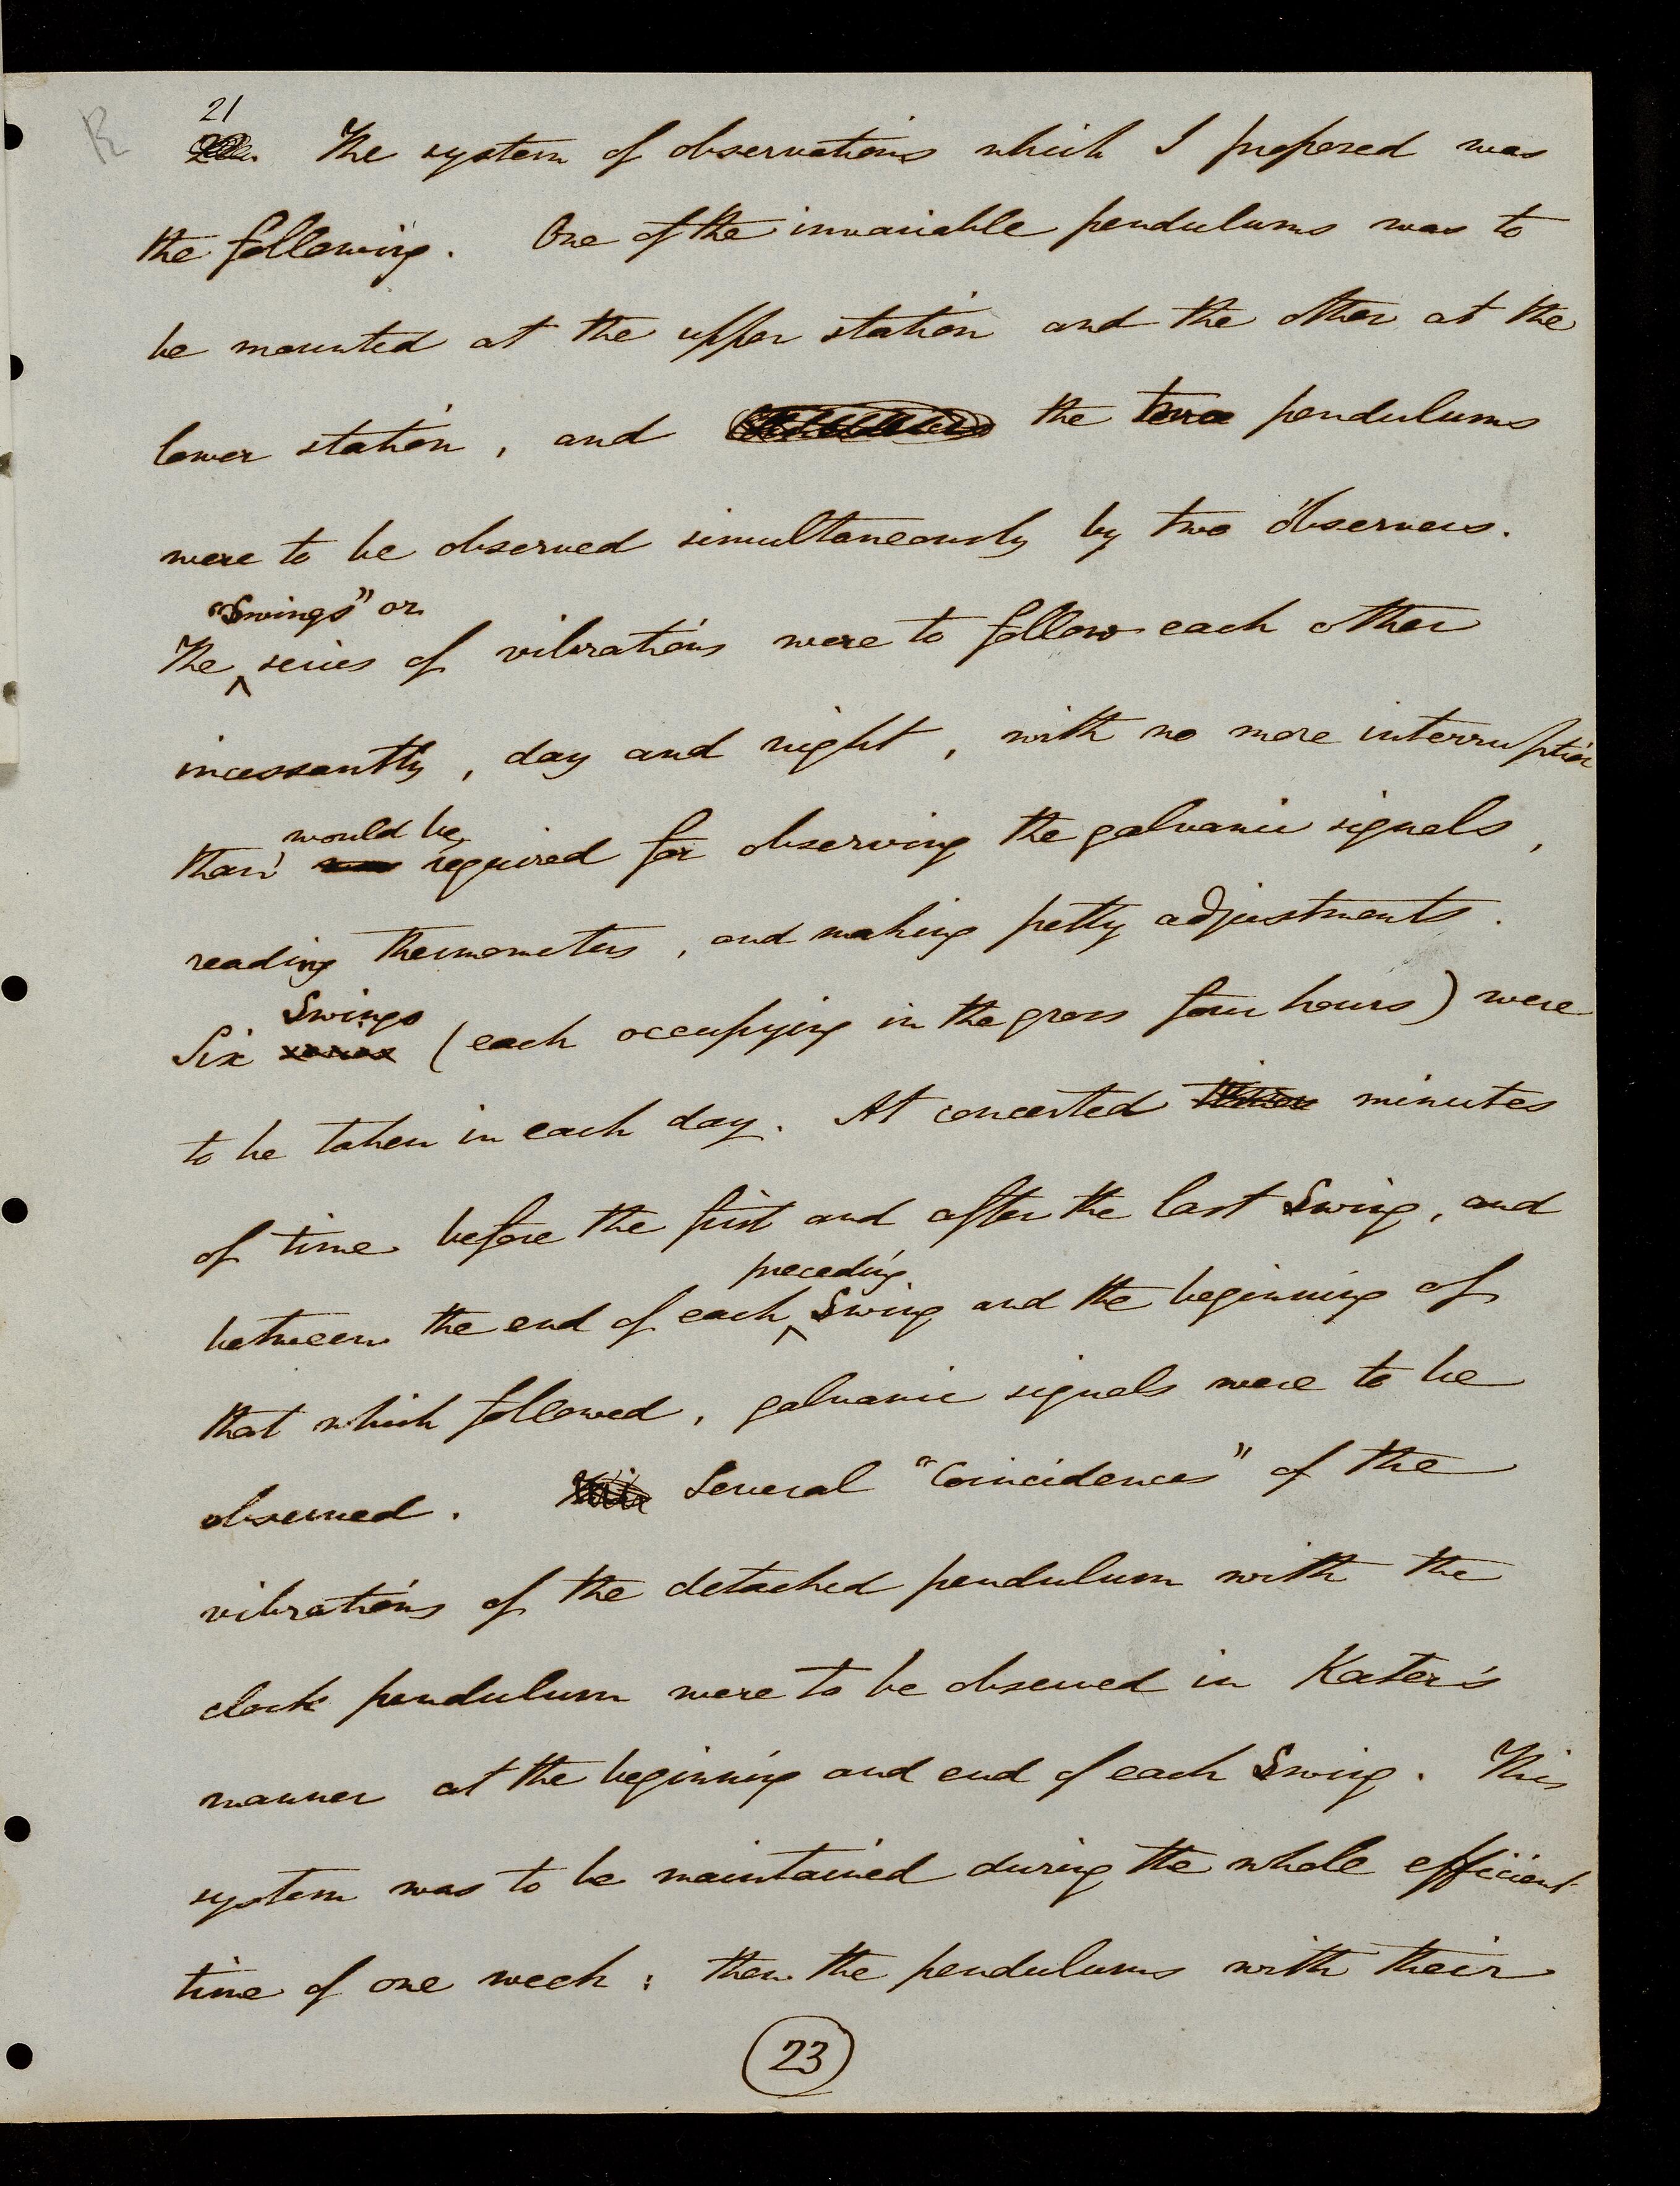 21
The system of observations which I proposed was
the following. One of the invariable pendulums was to
be mounted at the upper station and the other at the
lower station, and the two pendulums
were to be observed simultaneously by two observers.
"Swings" or
The series of vibrations were to follow each other
incessantly, day and night, with no more interruption
would be
than was required for observing the galvanic signals,
reading thermometers, and making petty adjustments.
Swings
Six series (each occupying in the gross four hours) were
to be taken in each day. At concerted minutes
of time before the first and after the last Swing, and
preceding
between the end of each Swing and the beginning of
that which followed, galvanic signals were to be
observed. Several "Coincidences" of the
vibrations of the detached pendulum with the
clock pendulum were to be observed in Kater's
manner at the beginning and end of each Swing. This
system was to be maintained during the whole efficient
time of one week: then the pendulums with their
23